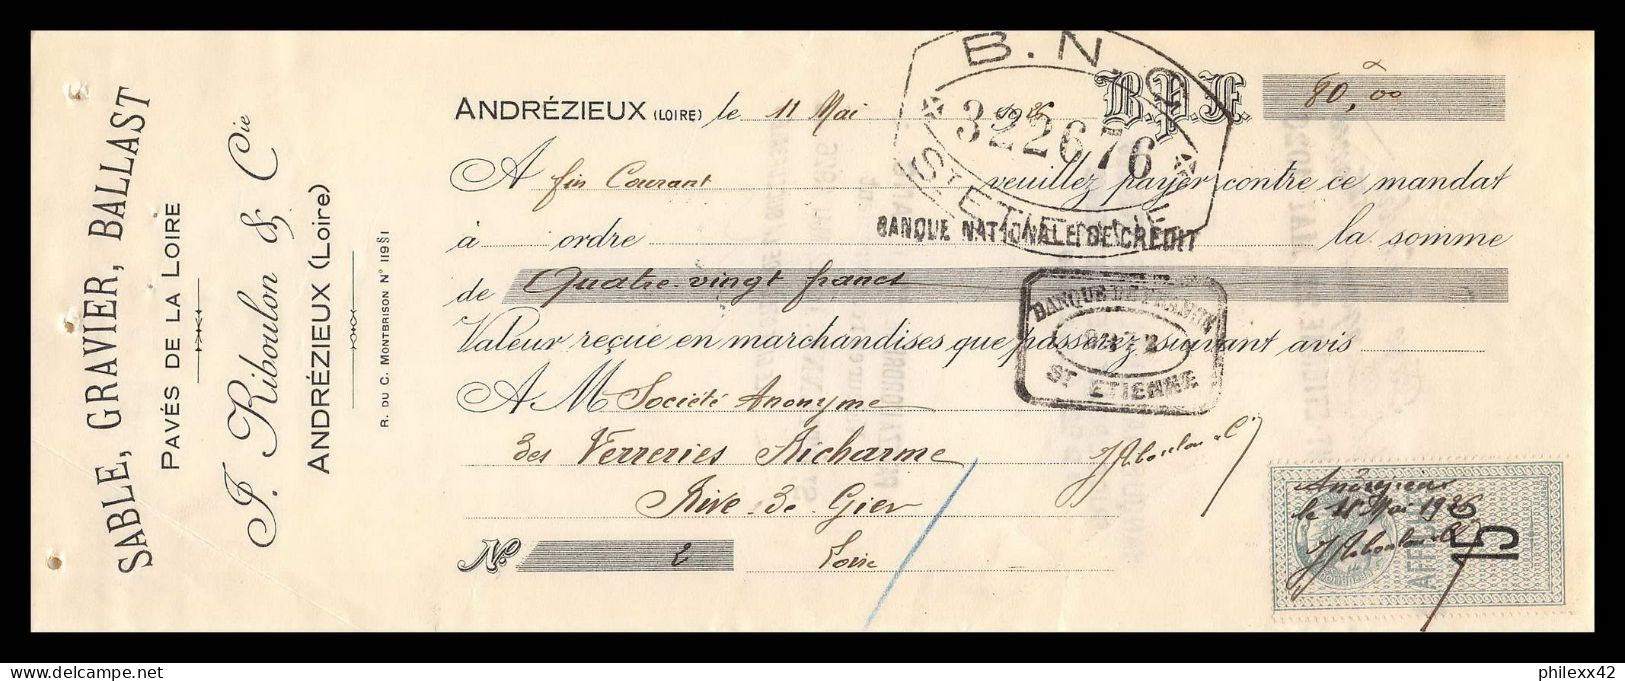 SABLE, GRAVIER, BALLAST
PAVÉS DE LA LOIRE
J. Riboulon & Cie
ANDRÉZIEUX (Loire)
R. DU C. MONTBRISON N° 11981
ANDRÉZIEUX (LOIRE) le 11 Mai 1926 B.P.F. 80,00
A fin Courant veuillez payer contre ce mandat
à ordre la somme
de Quatre vingt francs
Valeur reçue en marchandises que passerez suivant avis
A M Société Anonyme
des Verreries Richarme
Rive de Gier
No 2 Loire
B.N.C
322676
ST ETIENNE
BANQUE NATIONALE DE CREDIT
BANQUE
ST ETIENNE
J Riboulon & Cie
Andrézieux
le 11 Mai 1926
J Riboulon & Cie
15
philexx42